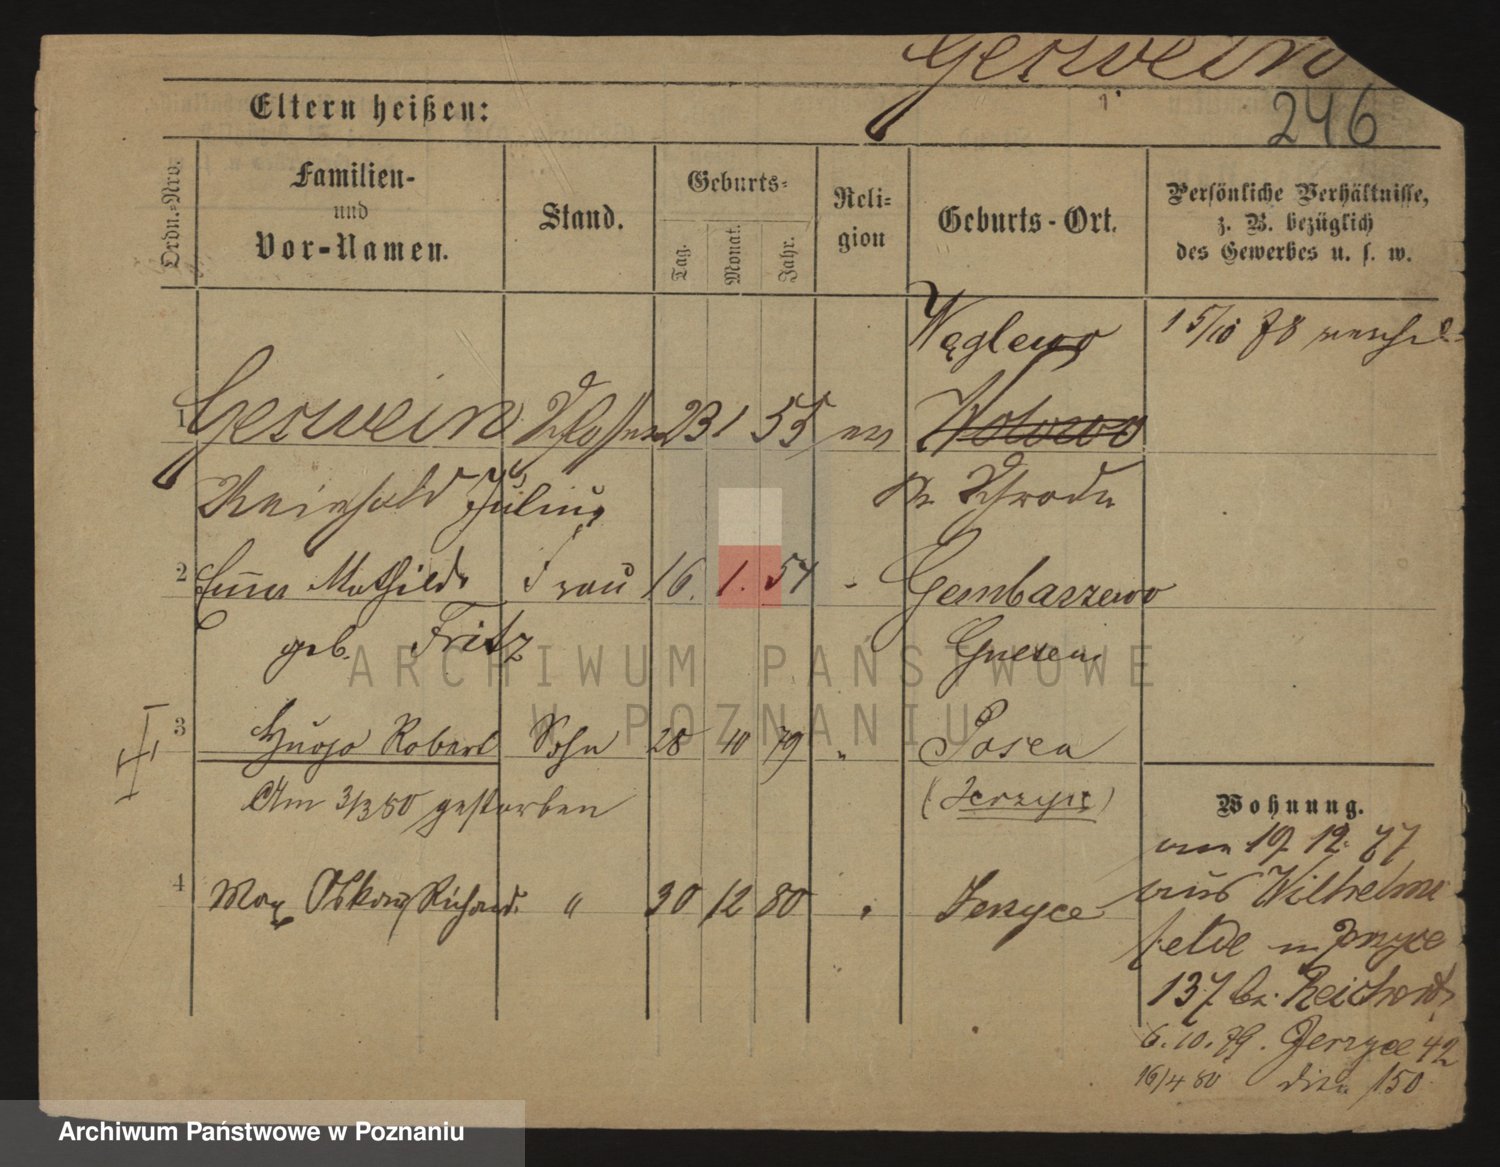 Gerswein
246
Eltern heißen:
Ordn.-Nro.
Familien-
und
Vor-Namen.
Stand.
Geburts-
Tag.
Monat.
Jahr.
Reli-
gion
Geburts-Ort.
Persönliche Verhältnisse,
z. B. bezüglich
des Gewerbes u. s. w.
Węglewo
15/10 78
1 Gerswein Schlosser 23 1 55 ev Wolowo
Reinhold Julius Kr. Schroda
2 Emma Mathilde Frau 16. 1. 54 - Gembarzewo
geb. Fritz Gnesen
3 Hugo Robert Sohn 28 10 79 " Posen
Am 3/3 80 gestorben (Jerzyce)
Wohnung.
am 19 12. 77
4 Max Oskar Richard " 30 12 80 " Jerzyce aus Wilhelms
felde n Jerzyce
137 bei Reichardt
6. 10. 79. Jerzyce 42
16/4 80 dito 150
ARCHIWUM PAŃSTWOWE
W POZNANIU
Archiwum Państwowe w Poznaniu